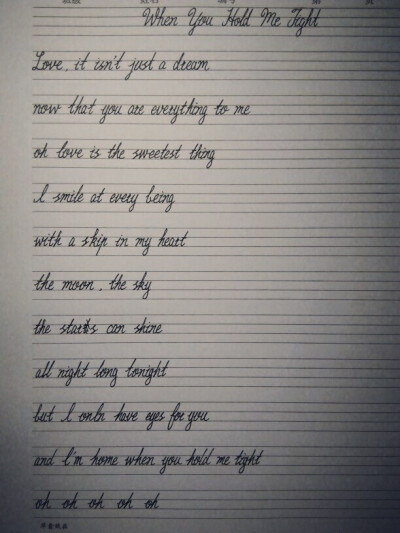 When You Hold Me Tight
Love, it isn't just a dream
now that you are everything to me
oh love is the sweetest thing
I smile at every being
with a skip in my heart
the moon, the sky
the stars can shine
all night long tonight
but I only have eyes for you
and I'm home when you hold me tight
oh oh oh oh oh